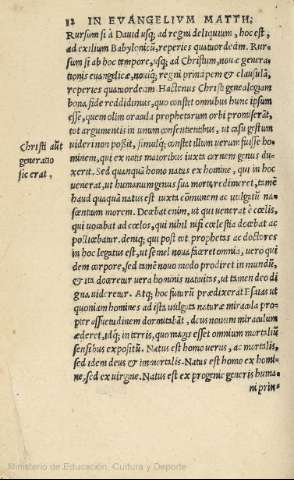 12 IN EVANGELIVM MATTH:
Rursum si à Dauid usq; ad regni deliquium, hoc est,
ad exilium Babylonicũ, reperies quatuordecim. Rur-
sum si ab hoc tempore, usq; ad Christum, nouæ genera-
tionis euangelicæ, nouiq; regni principem & clausulã,
reperies quatuordecim. Hactenus Christi genealogiam
bona fide reddidimus, quo constet omnibus hunc ipsum
esse, quem olim oracula prophetarum orbi promiserãt,
tot argumentis in unum consentientibus, ut casu gestum
Christi aũt
generatio
sic erat,
uideri non possit, simulq; constet illum uerum fuisse ho-
minem, qui ex natis maioribus iuxta carnem genus du-
xerit. Sed quanquã homo natus ex homine, qui in hoc
uenerat, ut humanum genus sua morte redimeret, tamẽ
haud quaquã natus est iuxta cõmunem ac uulgatũ na-
scentium morem. Decebat enim, ut qui uenerat è cœlis,
qui uocabat ad cœlos, qui nihil nisi cœleste docebat ac
pollicebatur. deniq; qui post tot prophetas ac doctores
in hoc legatus est, ut semel noua faceret omnia, uero qui
dem corpore, sed tamẽ nouo modo prodiret in mundũ,
& ita doceretur uera hominis natiuitas, ut tamen deo di
gna uideretur. Atq; hoc futurũ prædixerat Esaias ut
quoniam homines ad ista uulgata naturæ miracula pro-
pter assuetudinem dormitabãt, deus nouum miraculum
æderet, idq; in terris, quo magis esset omnium mortaliũ
sensibus expositũ. Natus est homo uerus, ac mortalis,
sed idem deus & immortalis. Natus est homo ex homi-
ne, sed ex uirgine. Natus est ex progenie generis huma-
ni prin-
Ministerio de Educación, Cultura y Deporte